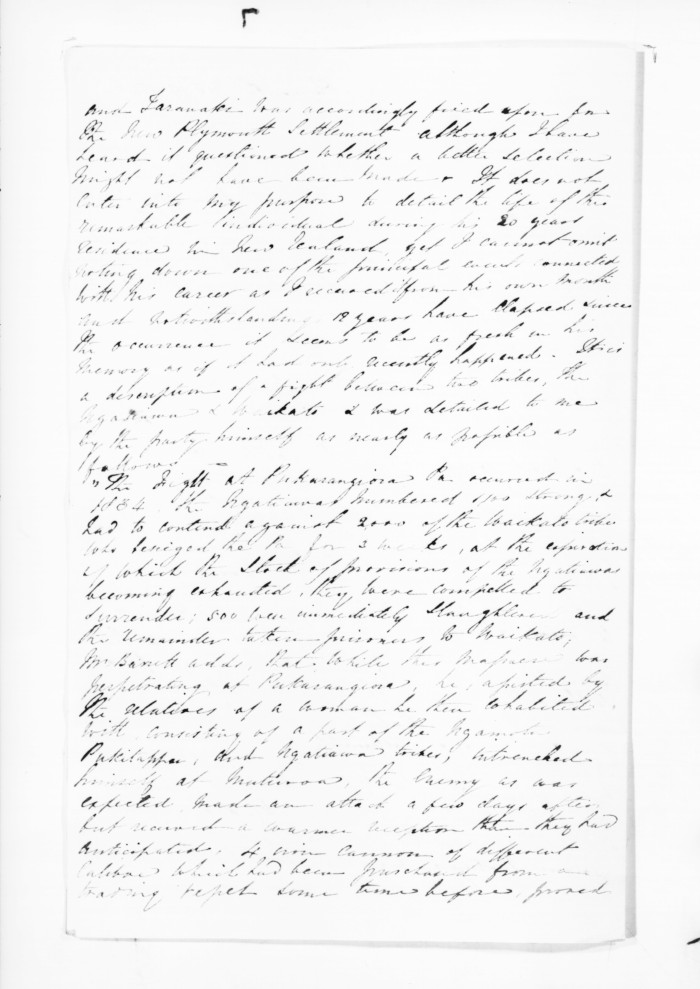 and Taranaki was accordingly fixed upon for
the New Plymouth Settlement although I have
heard it questioned whether a better selection
might not have been made. It does not
enter into my purpose to detail the life of this
remarkable individual during his 20 years
residence in New Zealand, yet I cannot omit
noting down one of the principal events connected
with his career as I received it from his own mouth
and notwithstanding 10 years have elapsed since
the occurrence it seems to be as fresh in his
memory as if it had only recently happened. It is
a description of a fight between two tribes, the
Ngatiawa & Waikato & was detailed to me
by the party himself as nearly as possible as
follows
"The Fight at Pukerangiora Pa occurred in
1834. The Ngatiawas numbered strong, &
had to contend against 2000 of the Waikato tribes
who besieged the Pa for 3 weeks, at the expiration
of which the stock of provisions of the Ngatiawas
becoming exhausted, they were compelled to
surrender; 500 were immediately slaughtered and
the remainder taken prisoners to Waikato;
Mr Barrett adds, that while this massacre was
perpetrating at Pukerangiora, he, assisted by
the relatives of a woman he then cohabited
with, consisting of a part of the Ngamotu
and Ngatiawa tribes, intrenched
himself at Moturoa, the Enemy as was
expected, made an attack a few days after,
but received a warmer reception than they had
anticipated. 4 iron cannon of different
Calibre which had been purchased from a
trading vessel some time before, proved